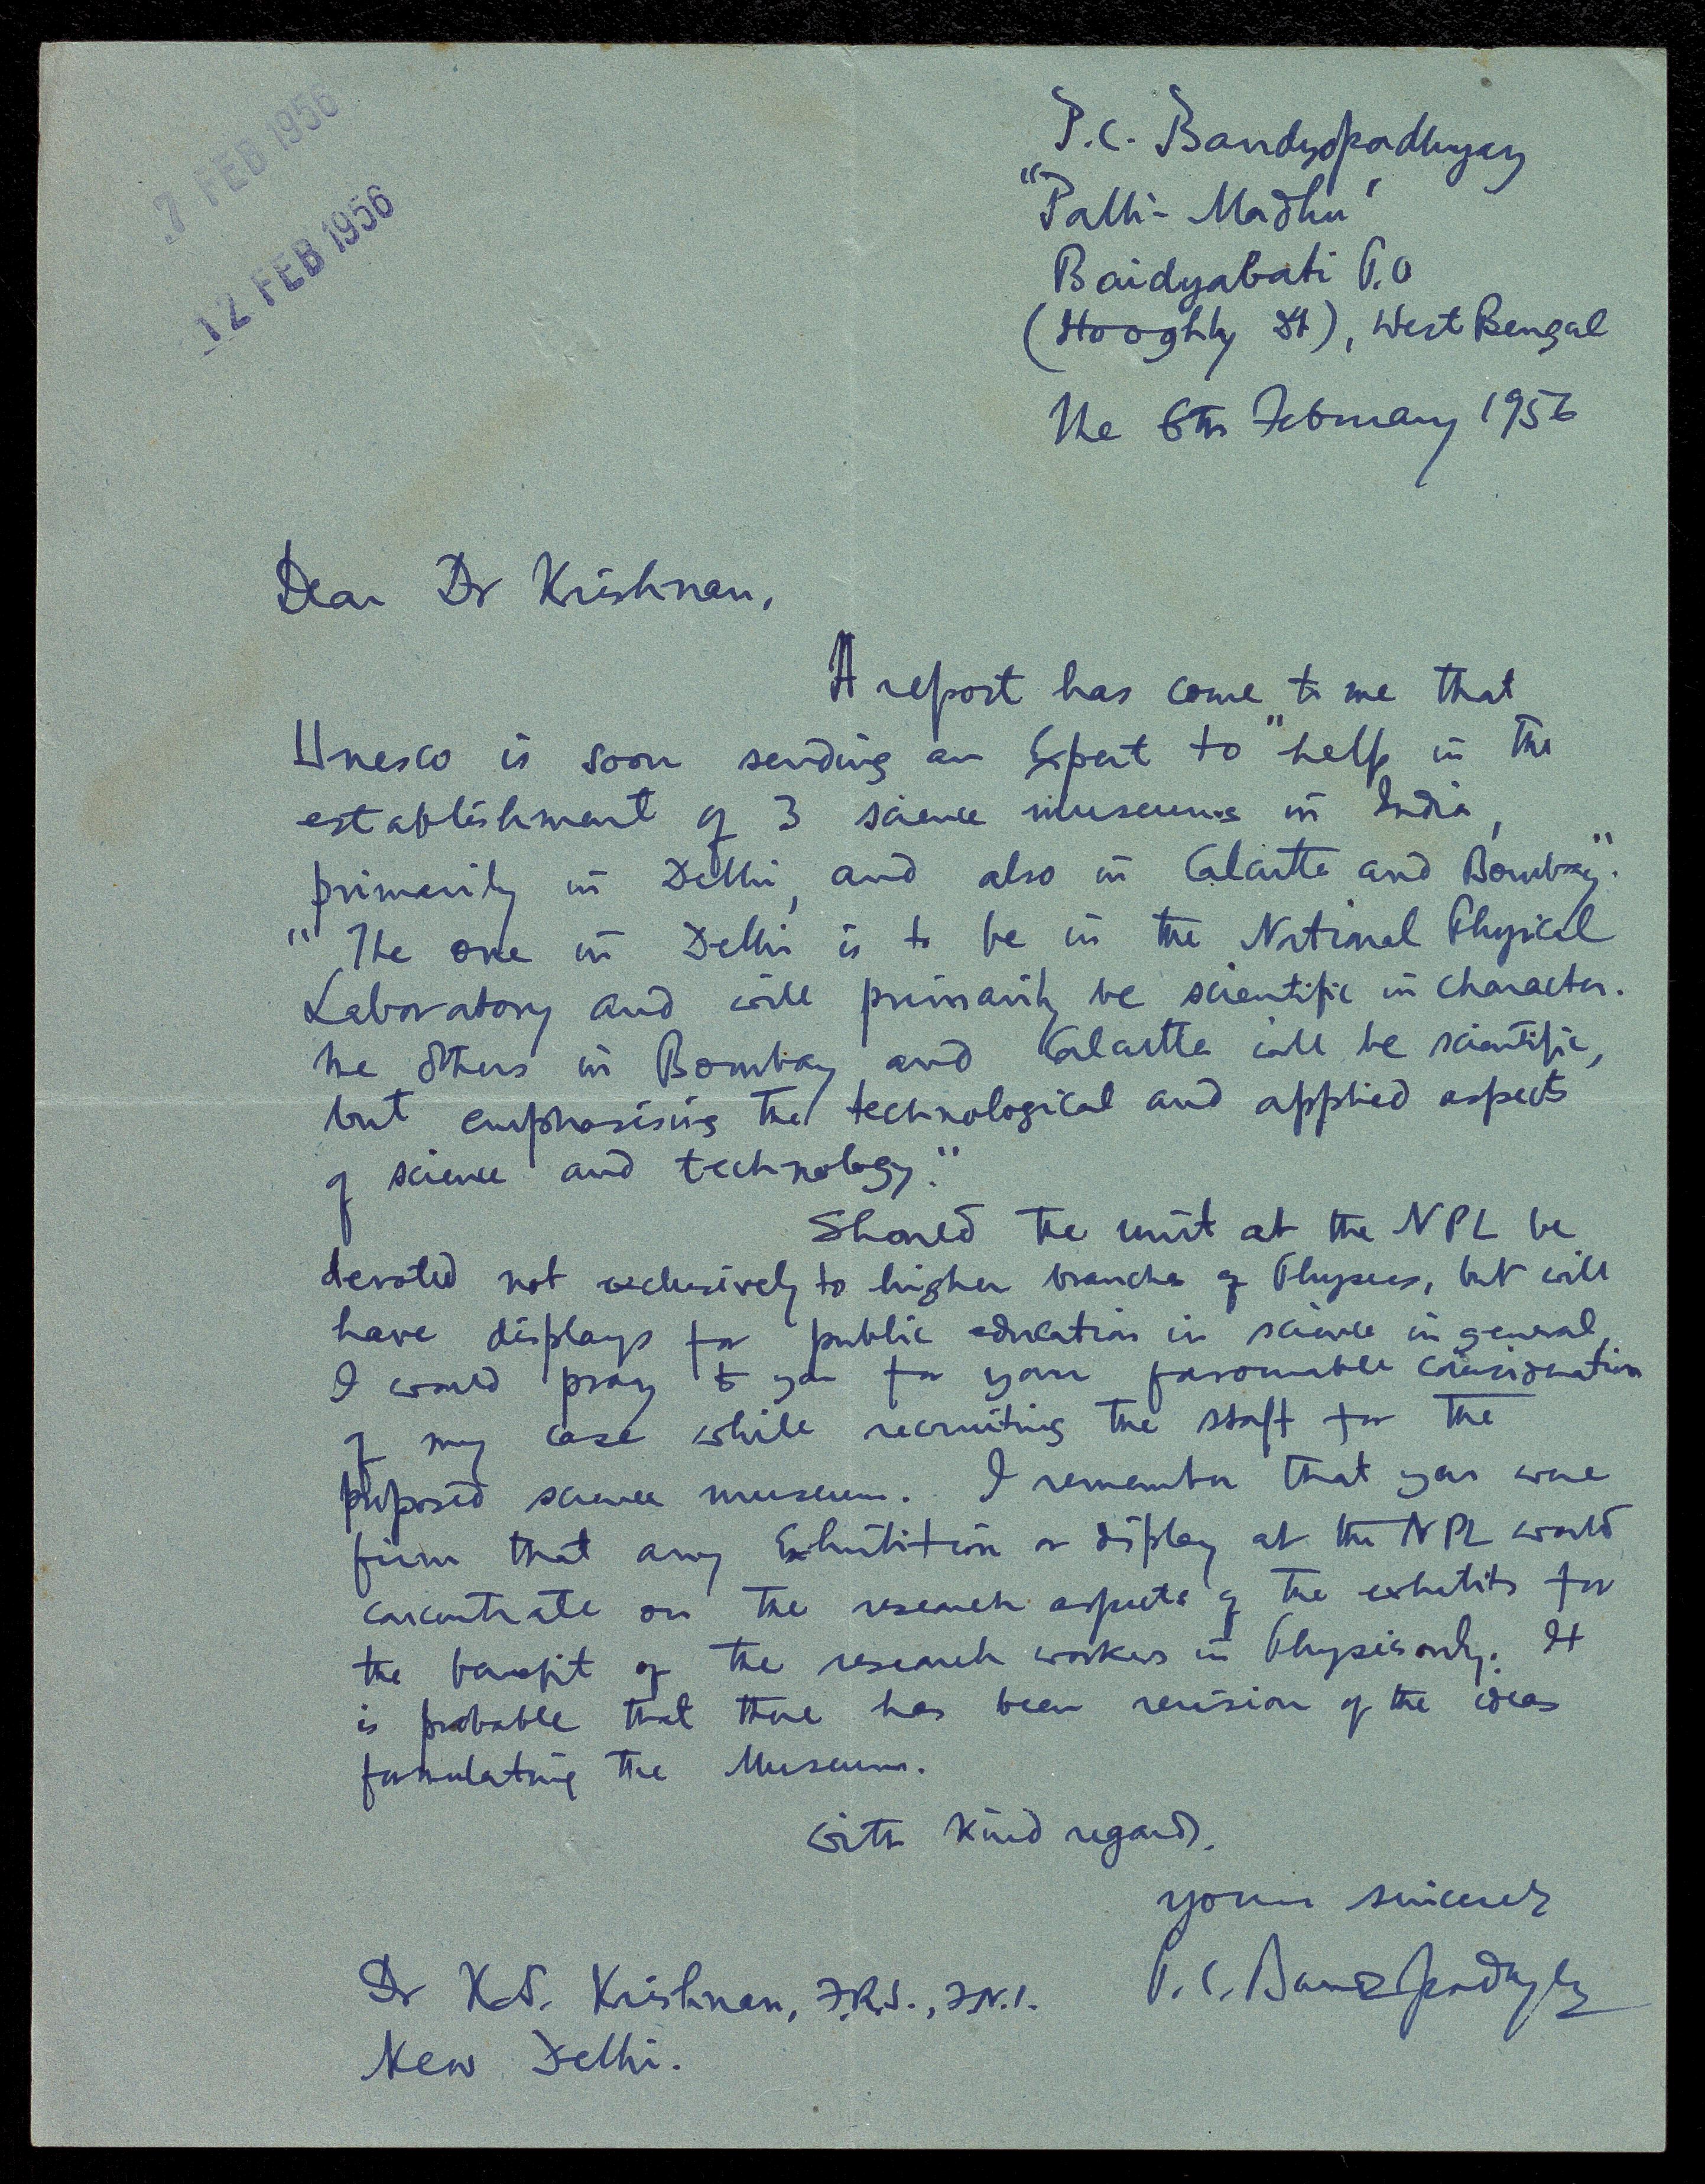 7 FEB 1956
12 FEB 1956
P.C. Bandyopadhyay
"Palli-Madhu"
Baidyabati P.O
(Hooghly Dt), West Bengal
The 6th February 1956
Dear Dr Krishnan,
A report has come to me that
Unesco is soon sending an Expert to "help in the
establishment of 3 science museums in India,
primarily in Delhi, and also in Calcutta and Bombay".
"The one in Delhi is to be in the National Physical
Laboratory and will primarily be scientific in character.
The others in Bombay and Calcutta will be scientific,
but emphasising the technological and applied aspects
of science and technology."
Should the unit at the NPL be
devoted not exclusively to higher branches of Physics, but will
have displays for public education in science in general,
I would pray to you for your favourable consideration
of my case while recruiting the staff for the
proposed science museum. I remember that you were
firm that any Exhibition or display at the NPL would
concentrate on the research aspects of the exhibits for
the benefit of the research workers in Physics only. It
is probable that there has been revision of the ideas
formulating the Museum.
With kind regards.
Yours sincerely
P.C. Bandyopadhyay
Dr K.S. Krishnan, F.R.S., F.N.I.
New Delhi.